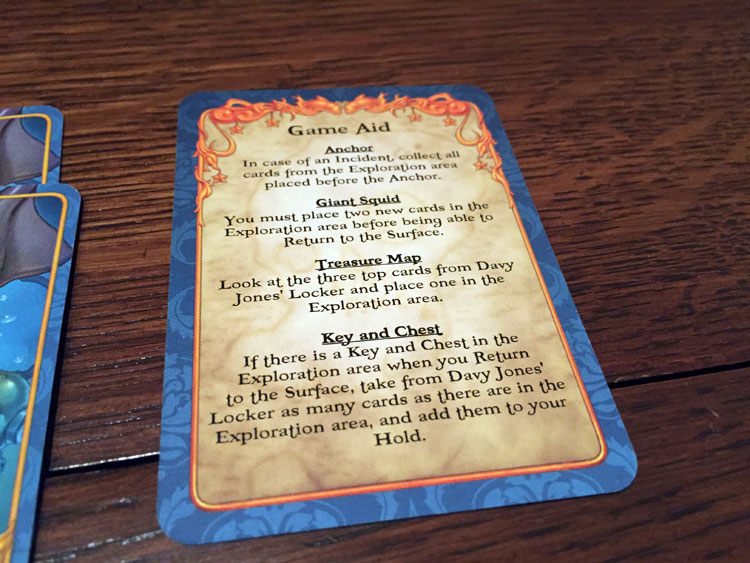 Game Aid
Anchor
In case of an Incident, collect all
cards from the Exploration area
placed before the Anchor.
Giant Squid
You must place two new cards in the
Exploration area before being able to
Return to the Surface.
Treasure Map
Look at the three top cards from Davy
Jones' Locker and place one in the
Exploration area.
Key and Chest
If there is a Key and Chest in the
Exploration area when you Return
to the Surface, take from Davy Jones'
Locker as many cards as there are in the
Exploration area, and add them to your
Hold.